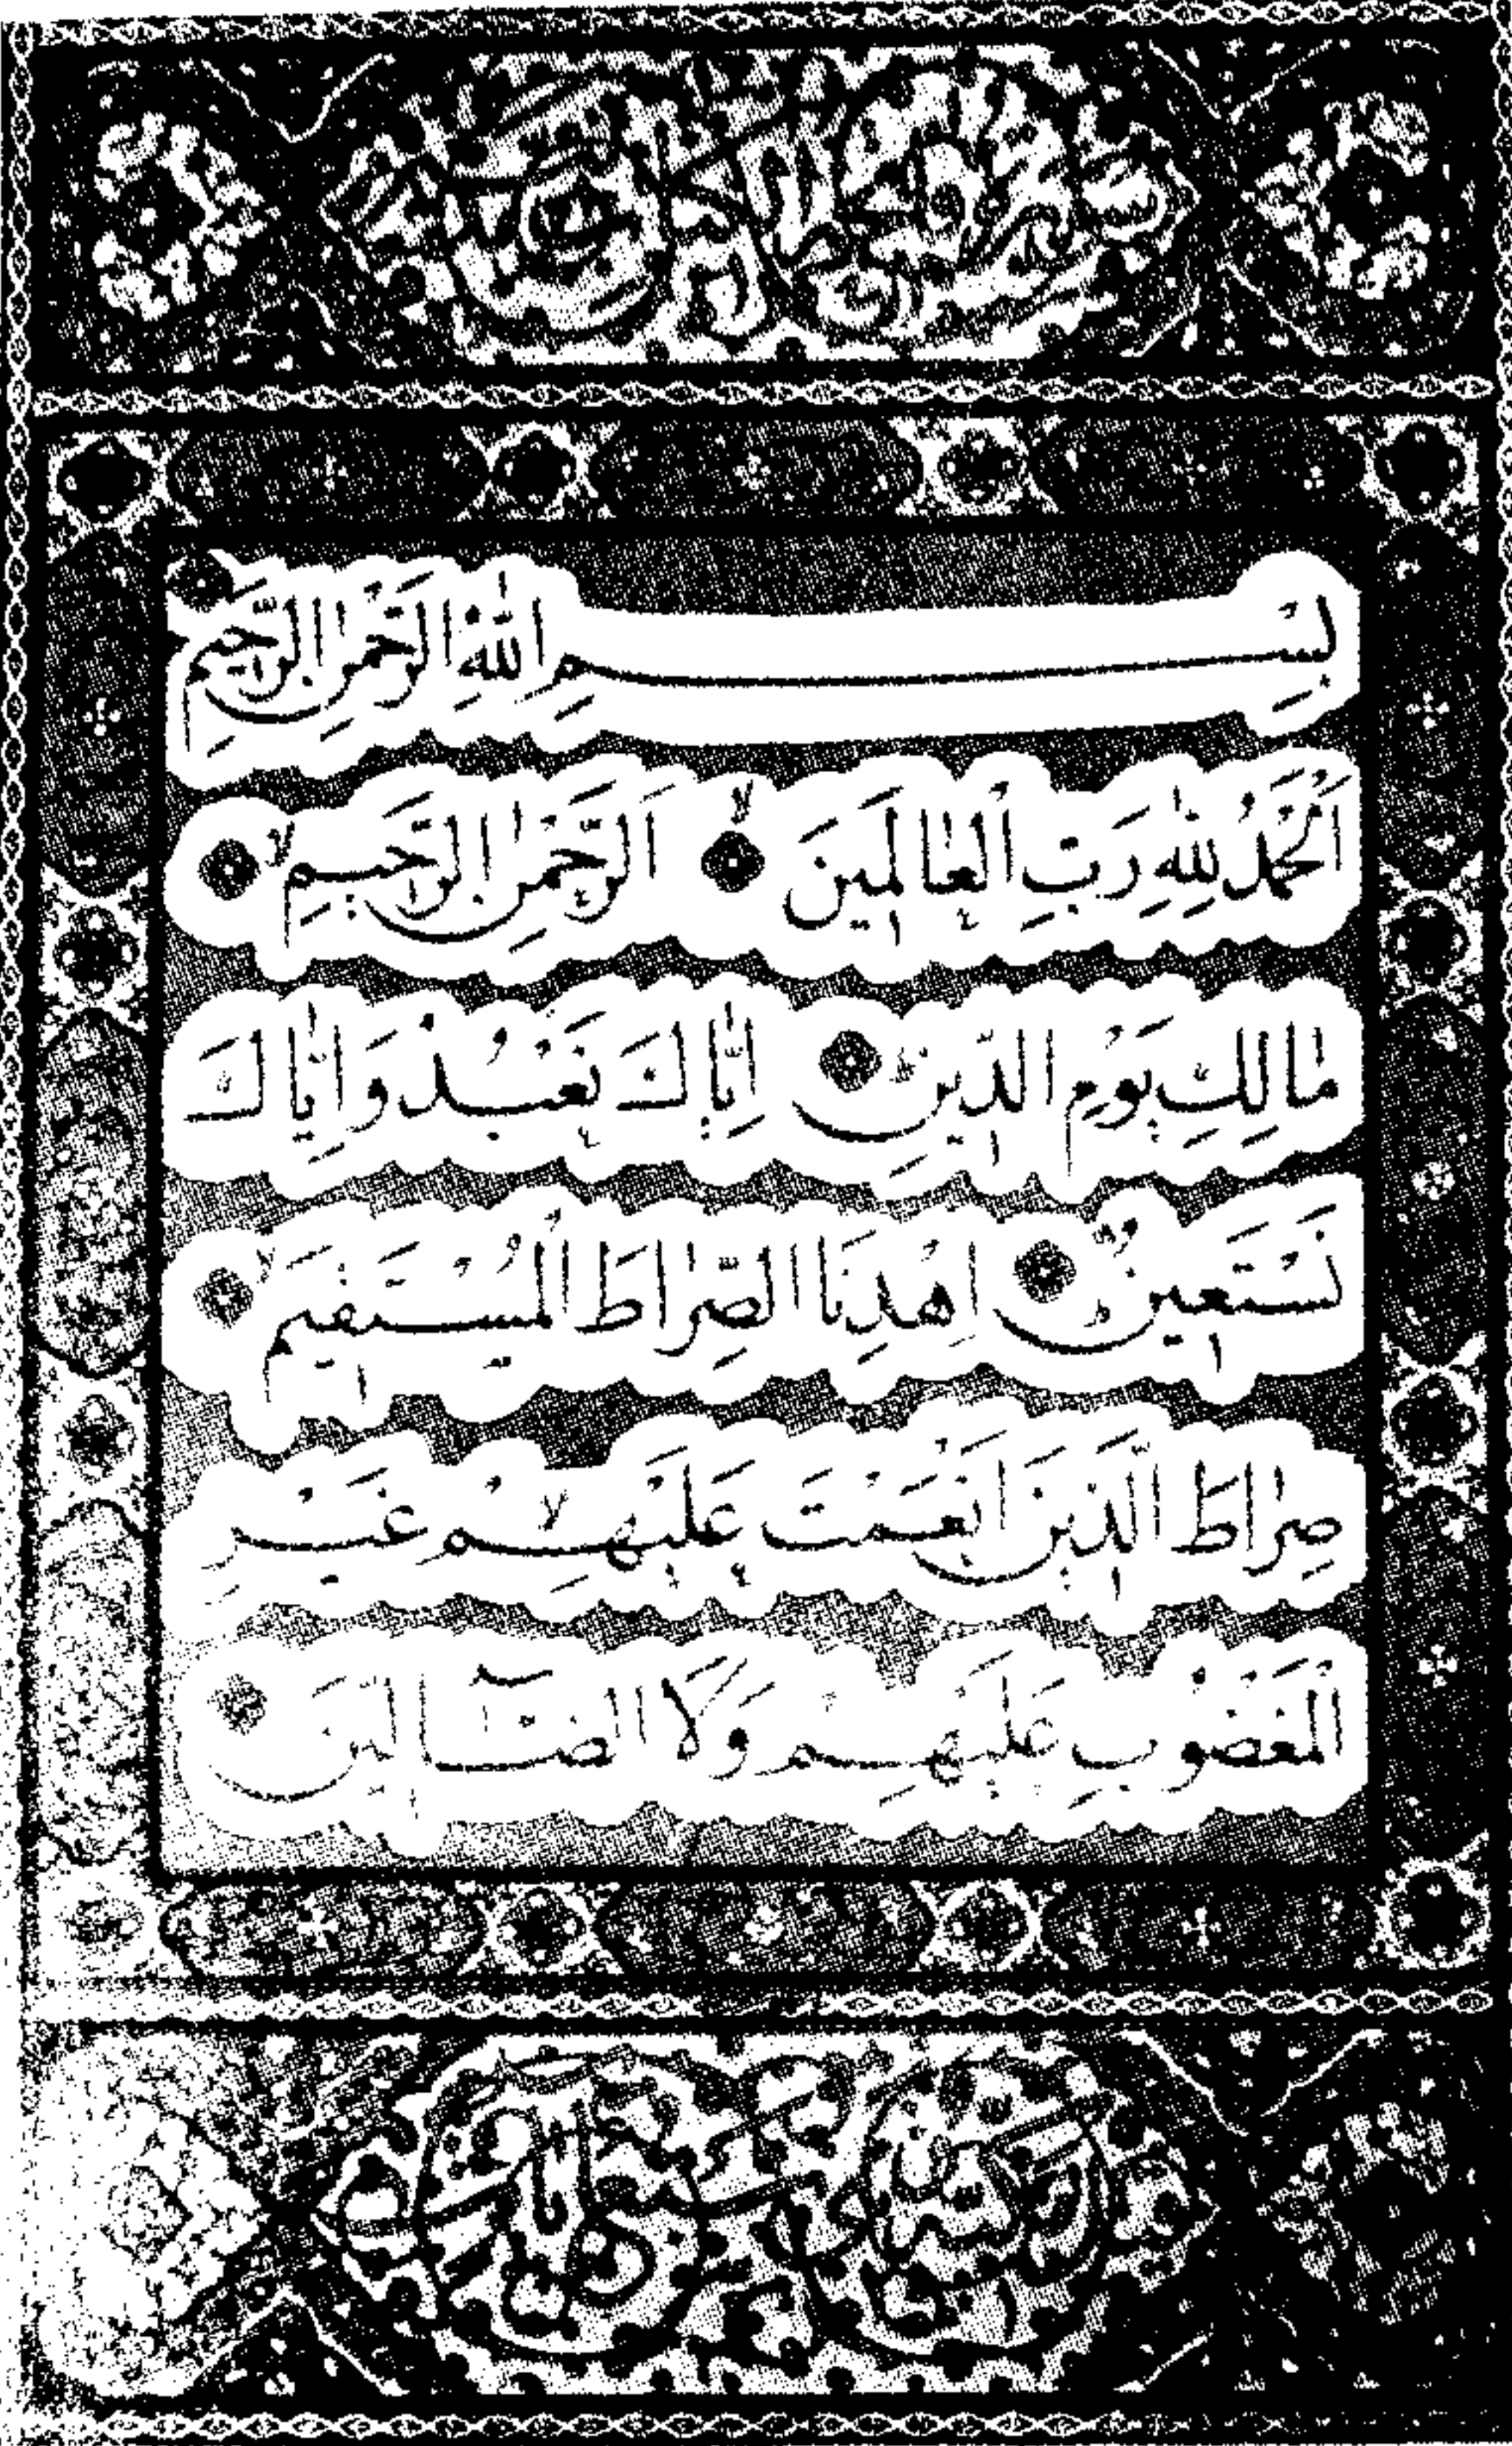 بِسْمِ اللّٰهِ الرَّحْمٰنِ الرَّحِيمِ
اَلْحَمْدُ لِلّٰهِ رَبِّ الْعَالَمِينَ ۙ اَلرَّحْمٰنِ الرَّحِيمِ ۙ
مَالِكِ يَوْمِ الدِّينِ ۜ اِيَّاكَ نَعْبُدُ وَاِيَّاكَ
نَسْتَعِينُ ۜ اِهْدِنَا الصِّرَاطَ الْمُسْتَقِيمَ ۙ
صِرَاطَ الَّذِينَ اَنْعَمْتَ عَلَيْهِمْ ۙ غَيْرِ
الْمَغْضُوبِ عَلَيْهِمْ وَلَا الضَّٓالِّينَ